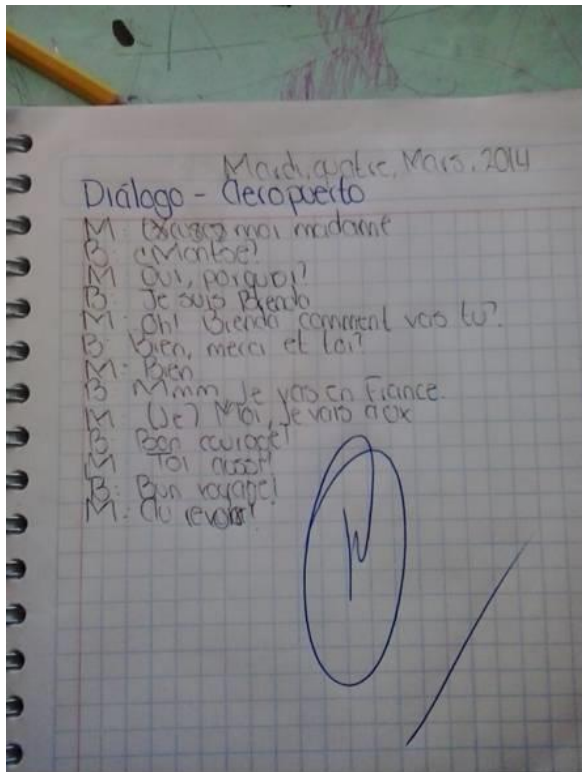 Mardi, quatre, Mars, 2014
Diálogo - Aeropuerto
M: Excusez moi madame
B: ¿Montse?
M: Oui, porquoi?
B: Je suis Brenda
M: Oh! Brenda comment vas tu?
B: Bien, merci et toi?
M: Bien
B: Mmm, Je vais en France.
M: (Je) Moi, je vais aux
B: Bon courage!
M: Toi aussi!
B: Bon voyage!
M: Au revoir!